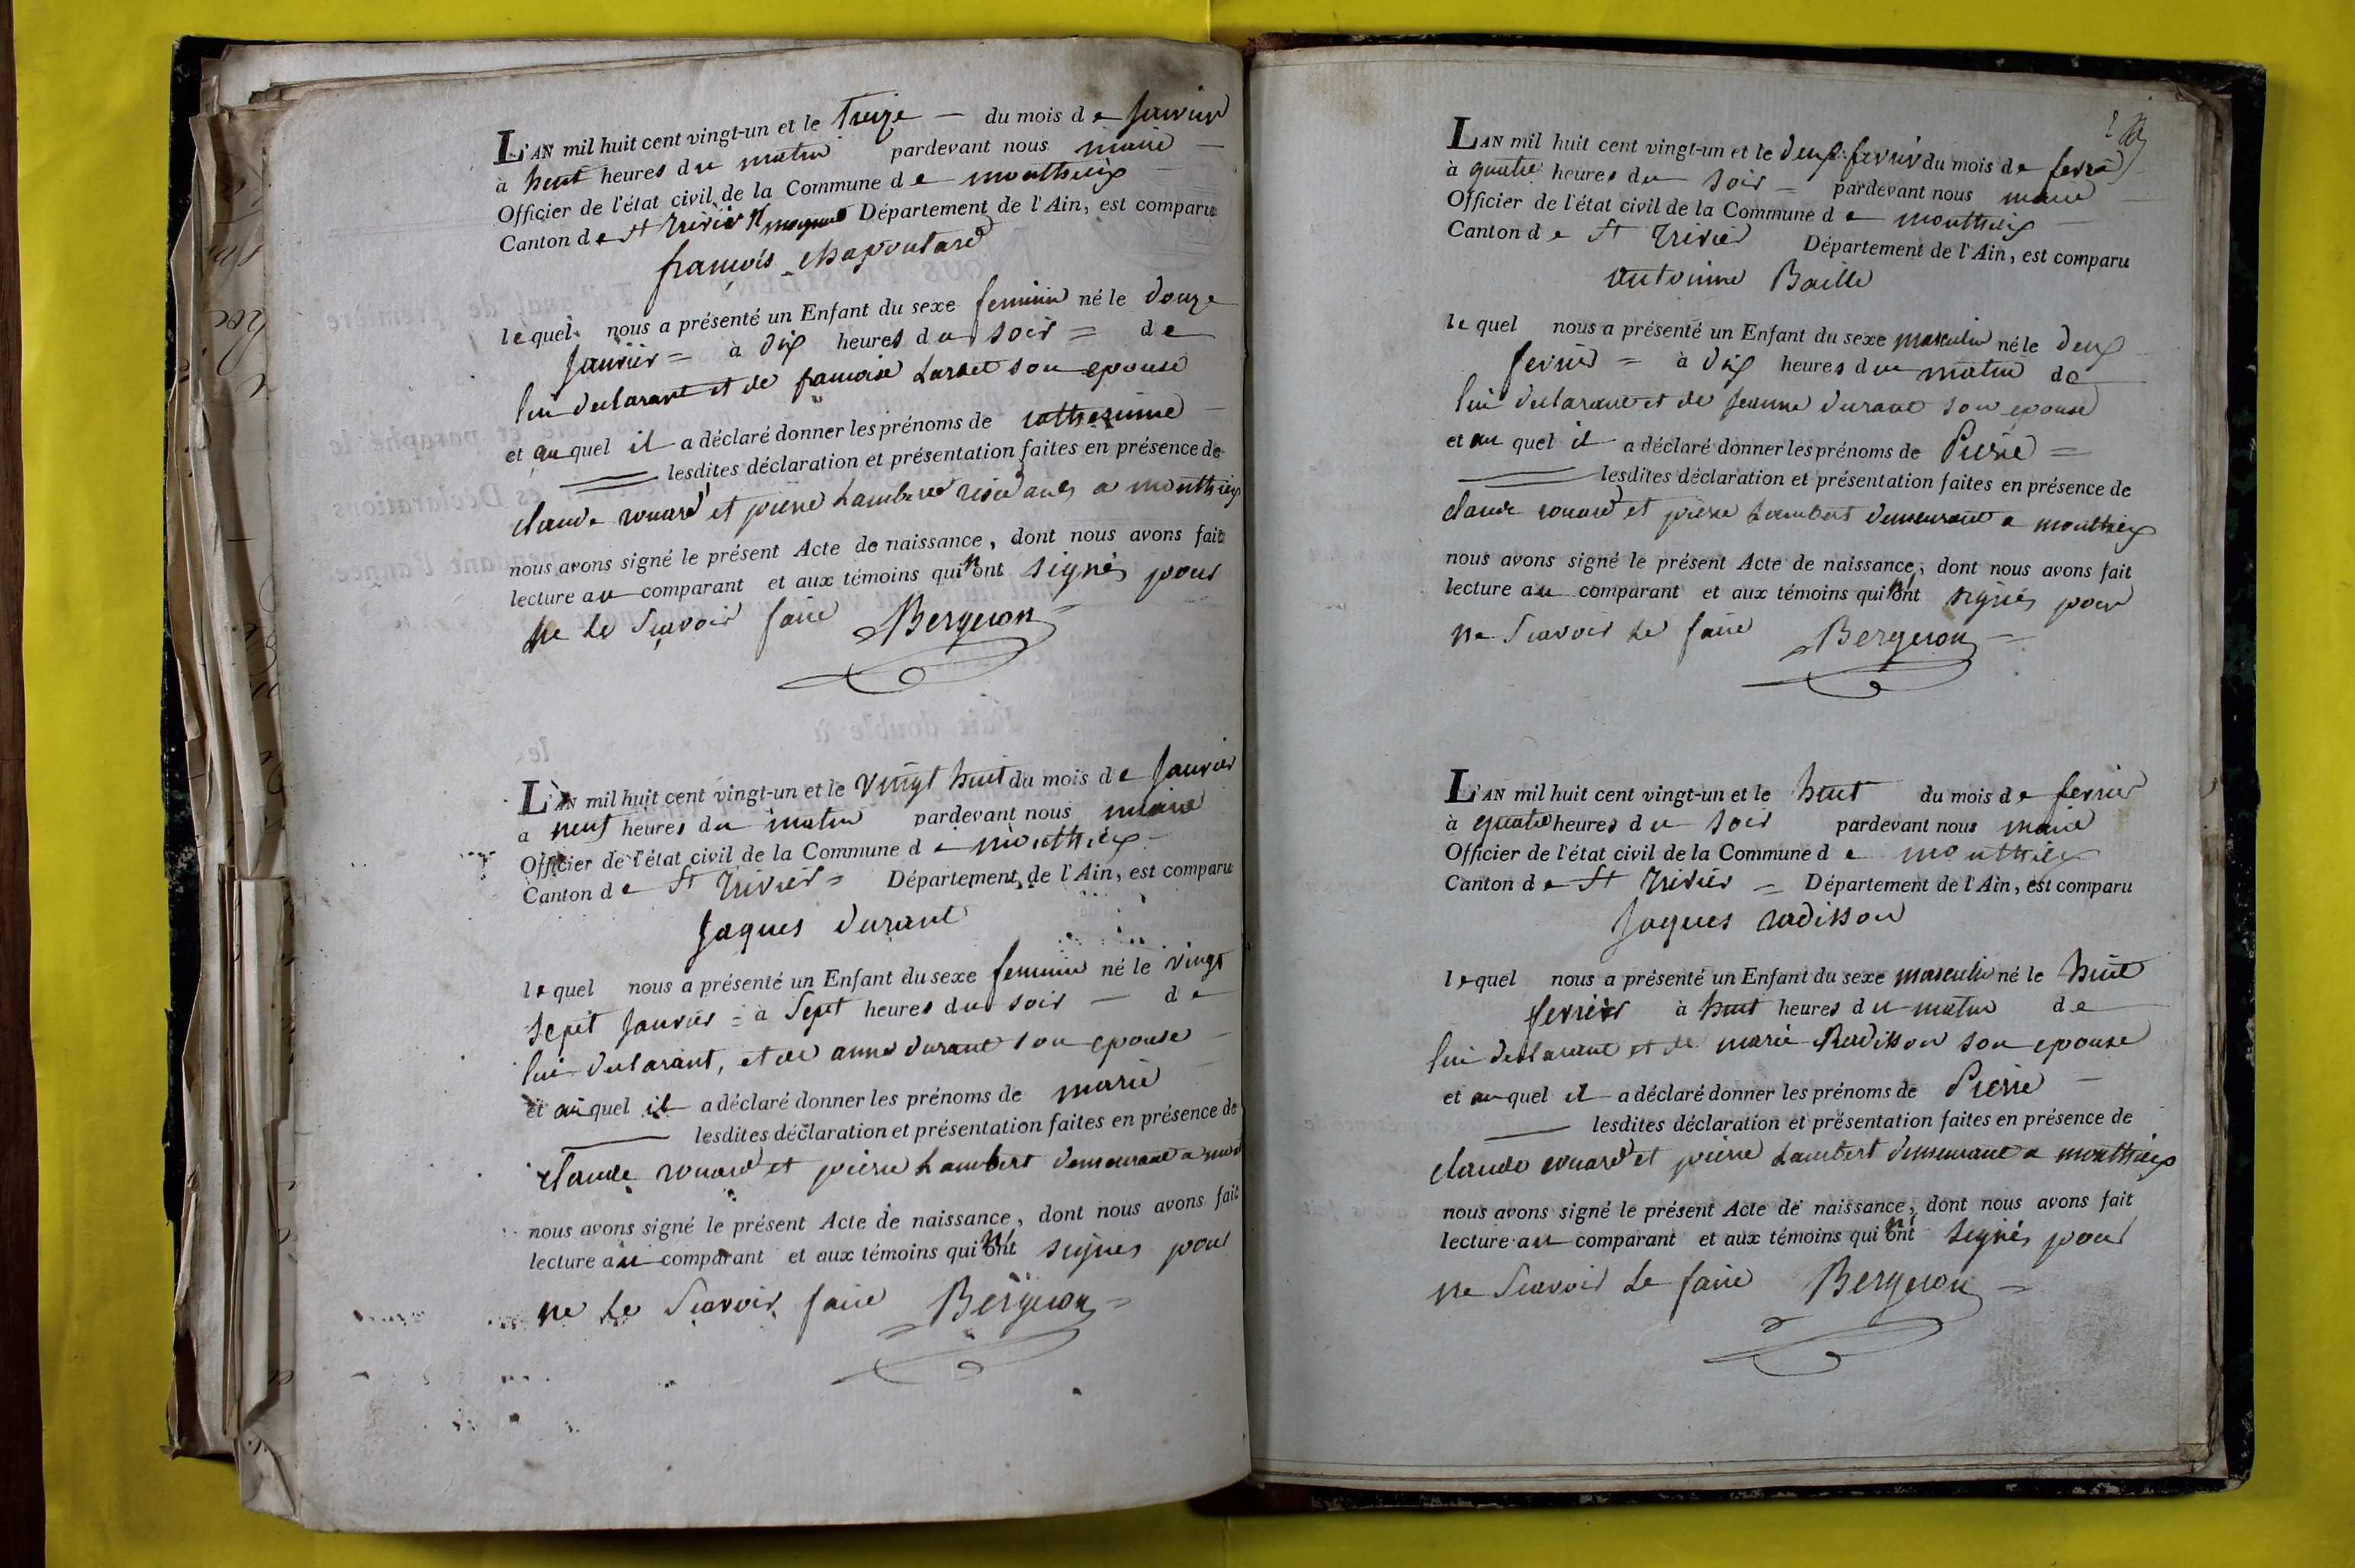 L'AN mil huit cent vingt-un et le Treize — du mois de Janvier
à huit heures du matin pardevant nous maire —
Officier de l'état civil de la Commune de monthieux —
Canton de St trivier Département de l'Ain, est comparu
françois chapoutard
lequel nous a présenté un Enfant du sexe feminin né le douze
Janvier = à dix heures du soir = de
lui declarant et de francoise son epouse
et au quel il a déclaré donner les prénoms de
lesdites déclaration et présentation faites en présence de
claude rouard et pierre Lambert residants a monthieux
nous avons signé le présent Acte de naissance, dont nous avons fait
lecture au comparant et aux témoins qui n'ont signés pour
ne le scavoir faire Bergeron
L'AN mil huit cent vingt-un et le vingt huit du mois de Janvier
à neuf heures du matin pardevant nous maire
Officier de l'état civil de la Commune de monthieux
Canton de St trivier = Département de l'Ain, est comparu
Jaques durant
lequel nous a présenté un Enfant du sexe feminin né le vingt
sept Janvier = à sept heures du soir — de
lui declarant, et de anne durant son epouse —
et au quel il a déclaré donner les prénoms de marie
lesdites déclaration et présentation faites en présence de
claude rouard et pierre Lambert demeurant a
nous avons signé le présent Acte de naissance, dont nous avons fait
lecture au comparant et aux témoins qui n'ont signes pour
ne le scavoir faire Bergeron =
LAN mil huit cent vingt-un et le deux fevrier du mois de fevrier
à quatre heures du soir = pardevant nous maire —
Officier de l'état civil de la Commune de monthieux —
Canton de St trivier Département de l'Ain, est comparu
antoinne Baille
lequel nous a présenté un Enfant du sexe masculin né le deux
fevrier = à dix heures du matin de
lui declarant et de jeanne durant son epouse
et au quel il a déclaré donner les prénoms de Pierre =
lesdites déclaration et présentation faites en présence de
claude rouard et pierre Lambert demeurant a monthieux
nous avons signé le présent Acte de naissance, dont nous avons fait
lecture au comparant et aux témoins qui n'ont signés pour
ne scavoir le faire Bergeron =
L'AN mil huit cent vingt-un et le huit du mois de fevrier
à quatre heures du soir pardevant nous maire
Officier de l'état civil de la Commune de monthieux
Canton de St trivier = Département de l'Ain, est comparu
Jaques radisson
lequel nous a présenté un Enfant du sexe masculin né le huit
fevrier à huit heures du matin de
lui declarant et de marie Radisson son epouse
et au quel il a déclaré donner les prénoms de Pierre —
lesdites déclaration et présentation faites en présence de
claude rouard et pierre Lambert demeurant a monthieux
nous avons signé le présent Acte de naissance, dont nous avons fait
lecture au comparant et aux témoins qui n'ont signés pour
ne scavoir le faire Bergeron =